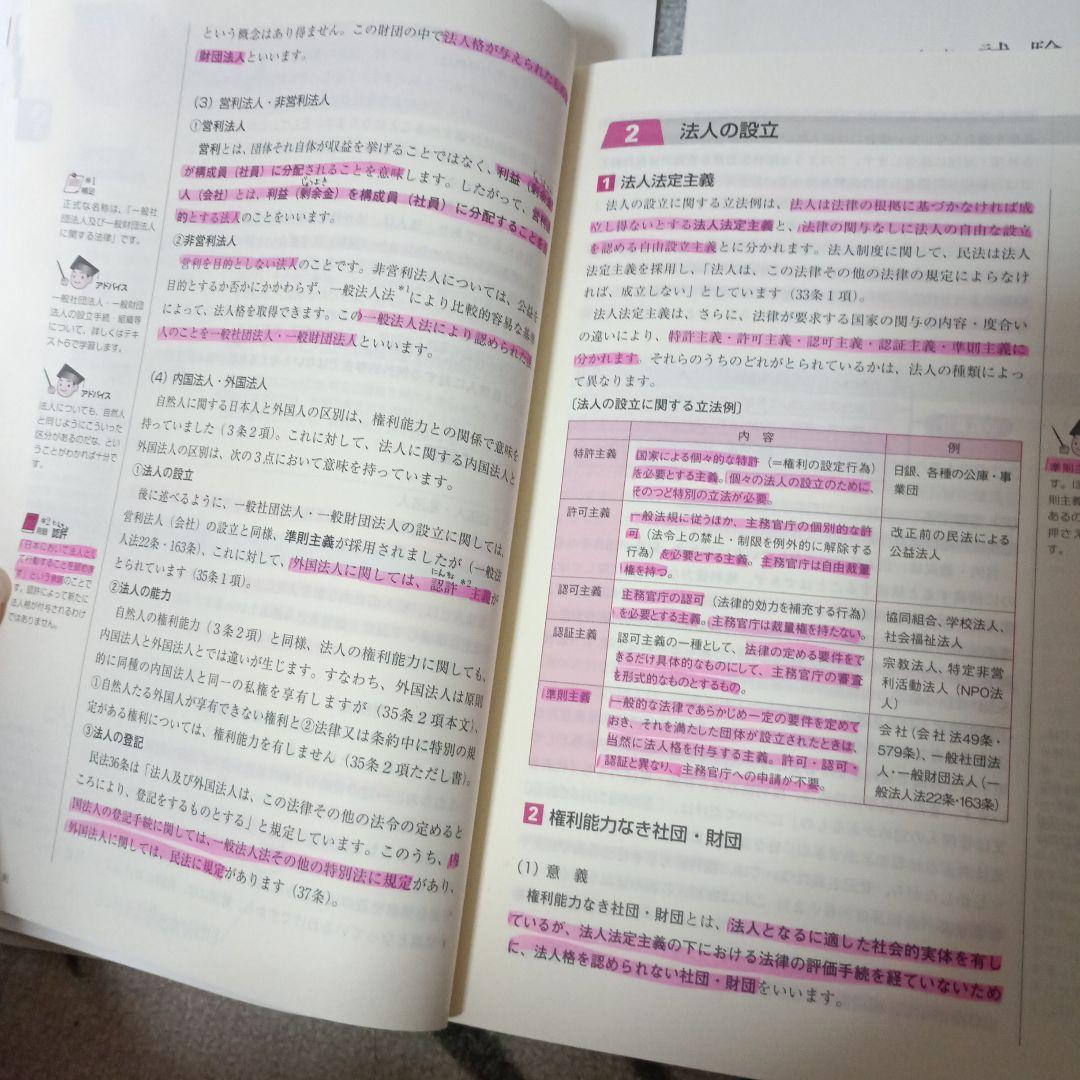 という概念はあり得ません。この財団の中で法人格が与えられたもの
財団法人といいます。
(3) 営利法人・非営利法人
①営利法人
営利とは、団体それ自体が収益を挙げることではなく、利益（剰余金
が構成員（社員）に分配されることを意味します。したがって、営利
じょうよきん
人（会社）とは、利益（剰余金）を構成員（社員）に分配することを
的とする法人のことをいいます。
②非営利法人
営利を目的としない法人のことです。非営利法人については、公益を
目的とするか否かにかかわらず、一般法人法*1により比較的容易な
によって、法人格を取得できます。この一般法人法により認められた
人のことを一般社団法人・一般財団法人といいます。
(4) 内国法人・外国法人
自然人に関する日本人と外国人の区別は、権利能力との関係で意味を
持っていました（3条2項）。これに対して、法人に関する内国法人と
外国法人の区別は、次の3点において意味を持っています。
①法人の設立
後に述べるように、一般社団法人・一般財団法人の設立に関しては、
営利法人（会社）の設立と同様、準則主義が採用されましたが（一般法
人法22条・163条）、これに対して、外国法人に関しては、認許*2主義が
にんきょ
とられています（35条1項）。
②法人の能力
自然人の権利能力（3条2項）と同様、法人の権利能力に関しても、
内国法人と外国法人とでは違いが生じます。すなわち、外国法人は原則
的に同種の内国法人と同一の私権を享有しますが（35条2項本文）、
①自然人たる外国人が享有できない権利と②法律又は条約中に特別の規
定がある権利については、権利能力を有しません（35条2項ただし書）。
③法人の登記
民法36条は「法人及び外国法人は、この法律その他の法令の定めると
ころにより、登記をするものとする」と規定しています。このうち、内
国法人の登記手続に関しては、一般法人法その他の特別法に規定があり、
外国法人に関しては、民法に規定があります（37条）。
*1
補足
正式な名称は、「一般社
団法人及び一般財団法人
に関する法律」です。
アドバイス
一般社団法人・一般財団
法人の設立手続・組織等
について、詳しくはテキ
スト6で学習します。
アドバイス
法人についても、自然人
と同じようにこういった
区分があるのだな、とい
うことがわかれば十分で
す。
*2 にんきょ
用語 認許
日本において法人とし
て行動することを認めま
す、という承認のことで
す。認許によって新たに
法人格が付与されるわけ
ではありません。
試験
2 法人の設立
1 法人法定主義
法人の設立に関する立法例は、法人は法律の根拠に基づかなければ成
立し得ないとする法人法定主義と、法律の関与なしに法人の自由な設立
を認める自由設立主義とに分かれます。法人制度に関して、民法は法人
法定主義を採用し、「法人は、この法律その他の法律の規定によらなけ
れば、成立しない」としています（33条1項）。
法人法定主義は、さらに、法律が要求する国家の関与の内容・度合い
の違いにより、特許主義・許可主義・認可主義・認証主義・準則主義に
分かれます。それらのうちのどれがとられているかは、法人の種類によっ
て異なります。
〔法人の設立に関する立法例〕
内容 例
特許主義
国家による個々的な特許（＝権利の設定行為）
を必要とする主義。個々の法人の設立のために、
そのつど特別の立法が必要。
日銀、各種の公庫・事
業団
許可主義
一般法規に従うほか、主務官庁の個別的な許
可（法令上の禁止・制限を例外的に解除する
行為）を必要とする主義。主務官庁は自由裁量
権を持つ。
改正前の民法による
公益法人
認可主義
主務官庁の認可（法律的効力を補充する行為）
を必要とする主義。主務官庁は裁量権を持たない。
協同組合、学校法人、
社会福祉法人
認証主義
認可主義の一種として、法律の定める要件をで
きるだけ具体的なものにして、主務官庁の審査
を形式的なものとするもの。
宗教法人、特定非営
利活動法人（NPO法
人）
準則主義
一般的な法律であらかじめ一定の要件を定めて
おき、それを満たした団体が設立されたときは、
当然に法人格を付与する主義。許可・認可・
認証と異なり、主務官庁への申請が不要。
会社（会社法49条・
579条）、一般社団法
人・一般財団法人（一
般法人法22条・163条）
2 権利能力なき社団・財団
(1) 意義
権利能力なき社団・財団とは、法人となるに適した社会的実体を有し
ているが、法人法定主義の下における法律の評価手続を経ていないため
に、法人格を認められない社団・財団をいいます。
準則主
す。
則主義
あるの
押さえ
す。